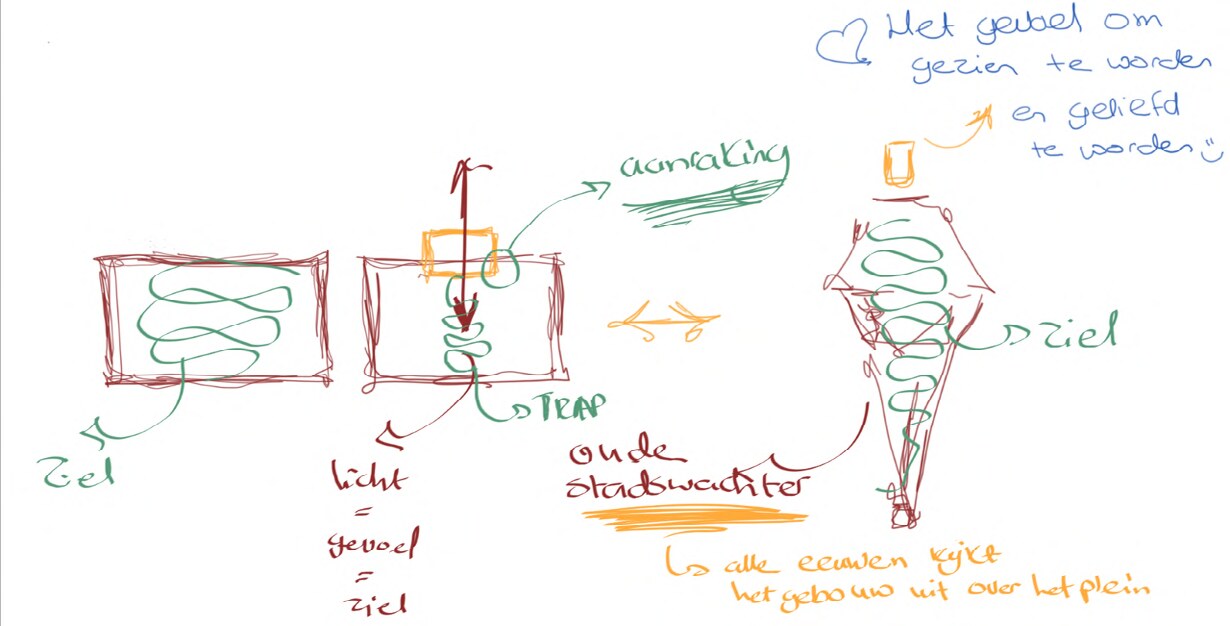 Het gevoel om
gezien te worden
en geliefd
te worden
aanraking
ziel
TRAP
ziel
licht
=
gevoel
=
ziel
oude
stadswachter
alle eeuwen kijkt
het gebouw uit over het plein